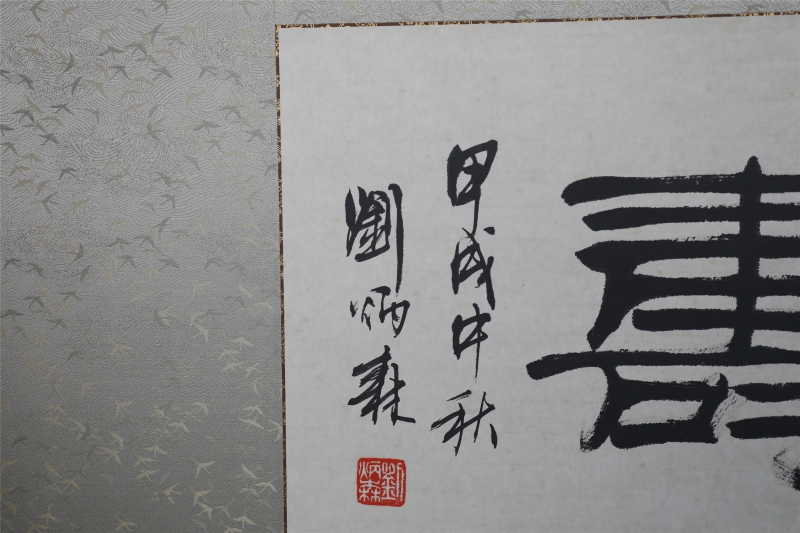 甲戌中秋
劉炳森
劉炳森